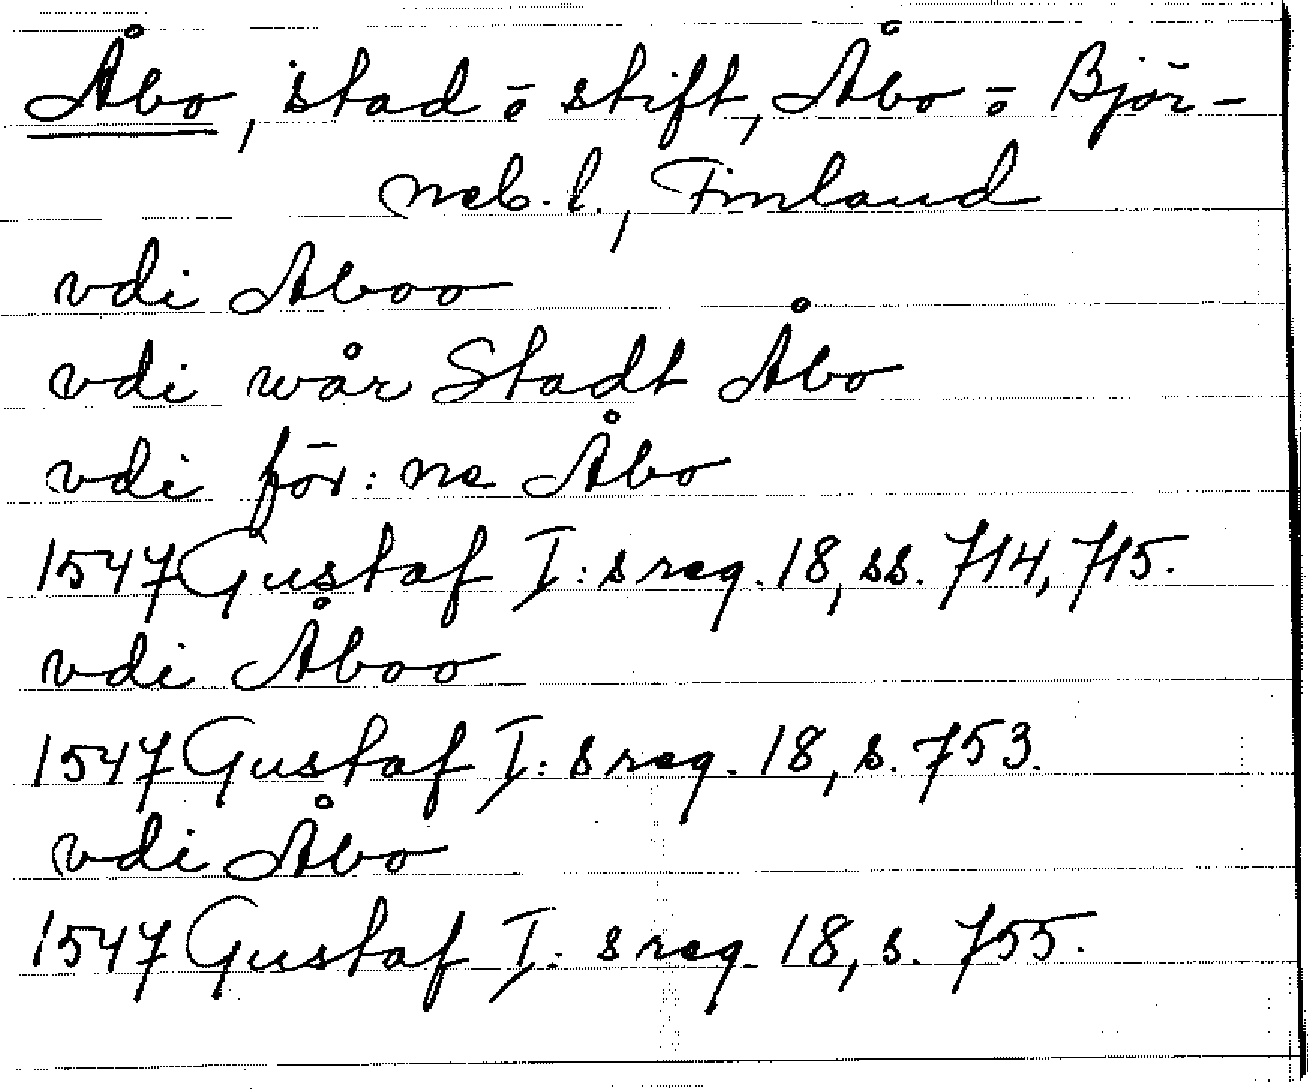 Åbo, stad o stift, Åbo o Björ-
neb. l., Finland
vdi Aboo
vdi wår Stadt Åbo
vdi för: ne Åbo
1547 Gustaf I: s reg. 18, ss. 714, 715.
vdi Åboo
1547 Gustaf I: s reg. 18, s. 753.
vdi Åbo
1547 Gustaf I: s reg. 18, s. 755.